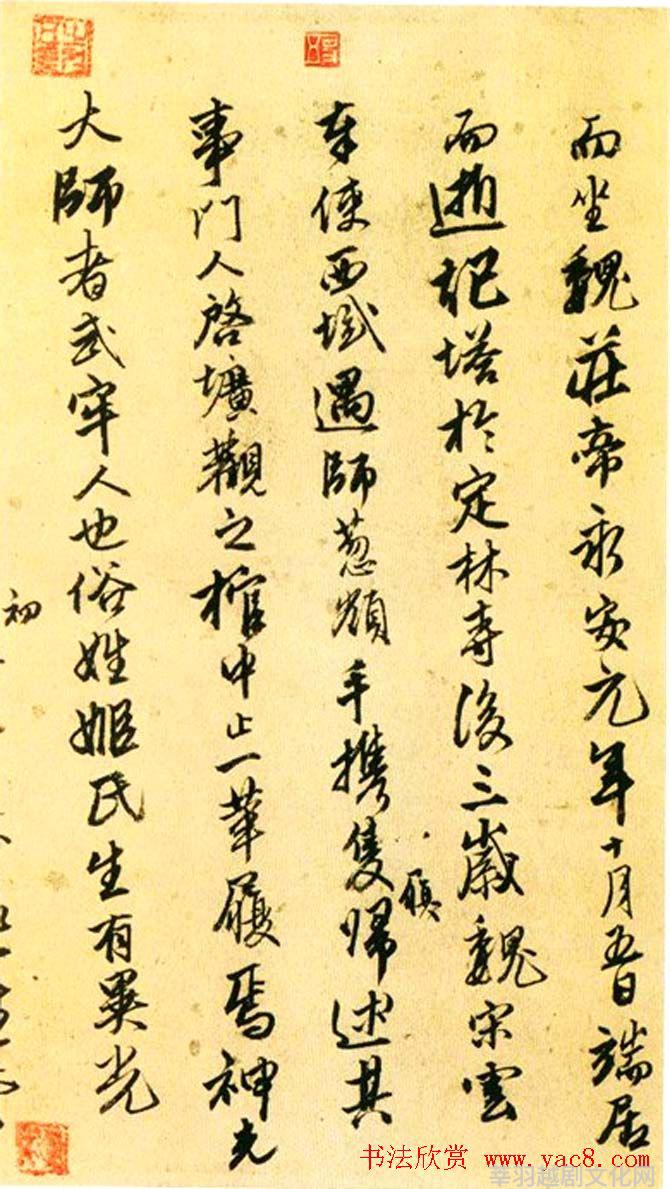 而坐魏莊帝永安元年十月五日端居
而逝記塔於定林寺後三歲魏宋雲
奉使西域遇師葱嶺手攜隻歸述其
履
事門人啓壙觀之棺中止一革履焉神光
大師者武牢人也俗姓姬氏生有異光
初
书法欣赏 www.yac8.com
幸羽越剧文化网